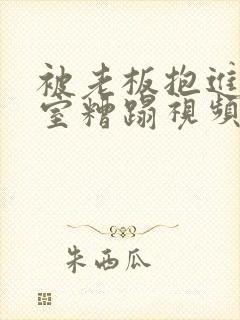 被老板抱进
室糟蹋視頻
朱西瓜